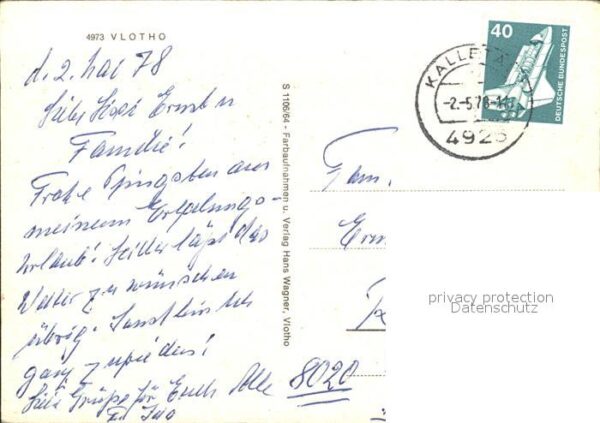 4973 VLOTHO
d. 2. Mai 78
Familie!
Frohe Pfingsten aus
meinem Erholungs-
urlaub! Leider läßt das
Wetter zu wünschen
übrig. Sonst bin ich
ganz zufrieden!
Liebe Grüße für Euch Alle
S 1106/64 - Farbaufnahmen u. Verlag Hans Wagner, Vlotho
40
DEUTSCHE BUNDESPOST
KALLETAL
-2.-5.78-
4925
Fam.
privacy protection
Datenschutz
8020